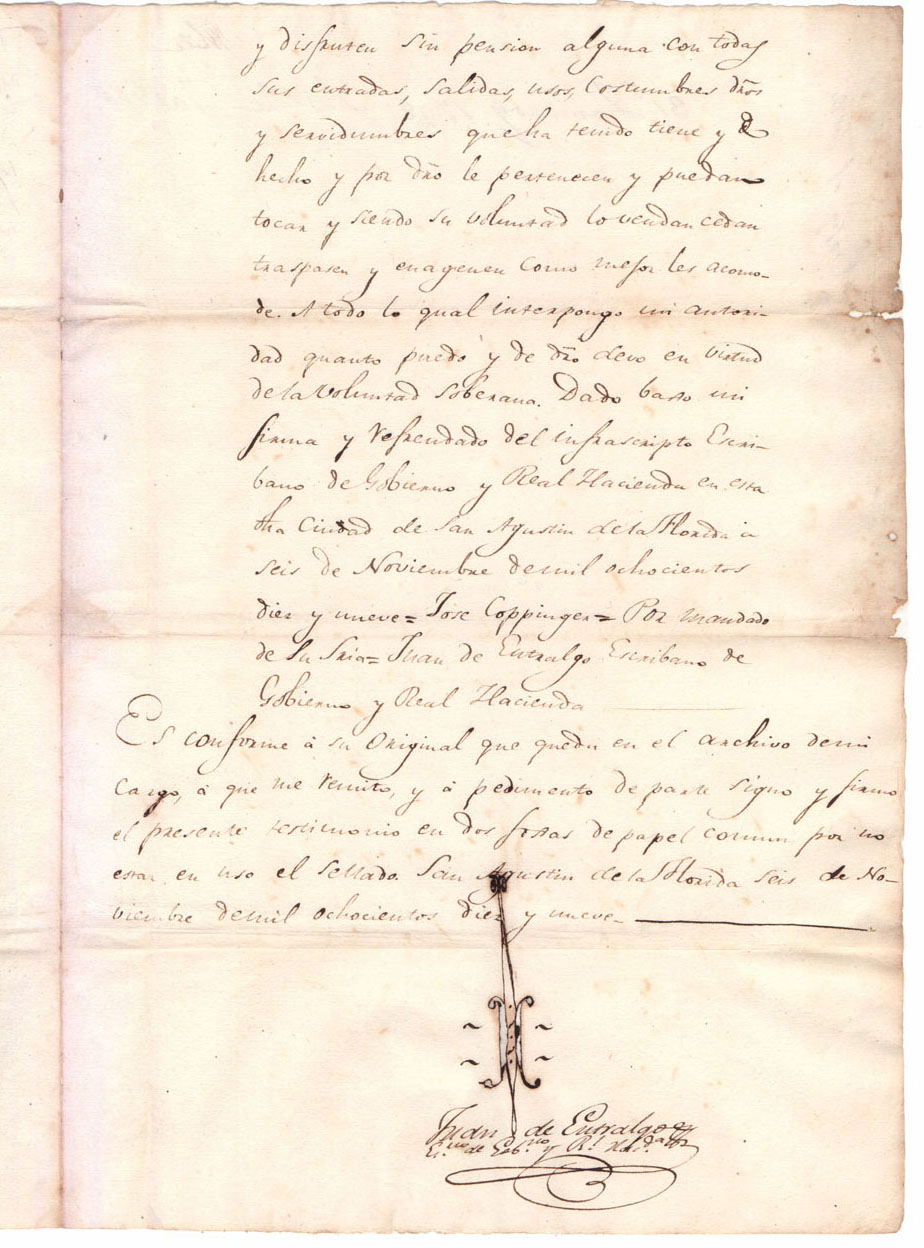 y disfruten sin pension alguna con todas
sus entradas, salidas, usos, costumbres dros
y servidumbres que ha tenido tiene y de
hecho y por dro le pertenecen y puedan
tocar y siendo su voluntad lo vendan cedan
traspasen y enagenen como mejor les acomo-
de. A todo lo qual interpongo mi autori-
dad quanto puedo y de dro devo en virtud
de la Voluntad Soberana. Dado baxo mi
firma y refrendado del infrascripto Escri-
bano de Gobierno y Real Hacienda en esta
dha Ciudad de San Agustin de la Florida a
seis de Noviembre de mil ochocientos
diez y nueve= Jose Coppinger= Por mandado
de Su Sria= Juan de Entralgo Escribano de
Gobierno y Real Hacienda
Es conforme á su Original que queda en el archivo de mi
cargo, á que me remito, y á pedimento de parte signo y firmo
el presente testimonio en dos foxas de papel comun por no
estar en uso el sellado San Agustin de la Florida seis de No-
viembre de mil ochocientos diez y nueve-
Juan de Entralgo
Es.no de Gob.no y R.l Had.a